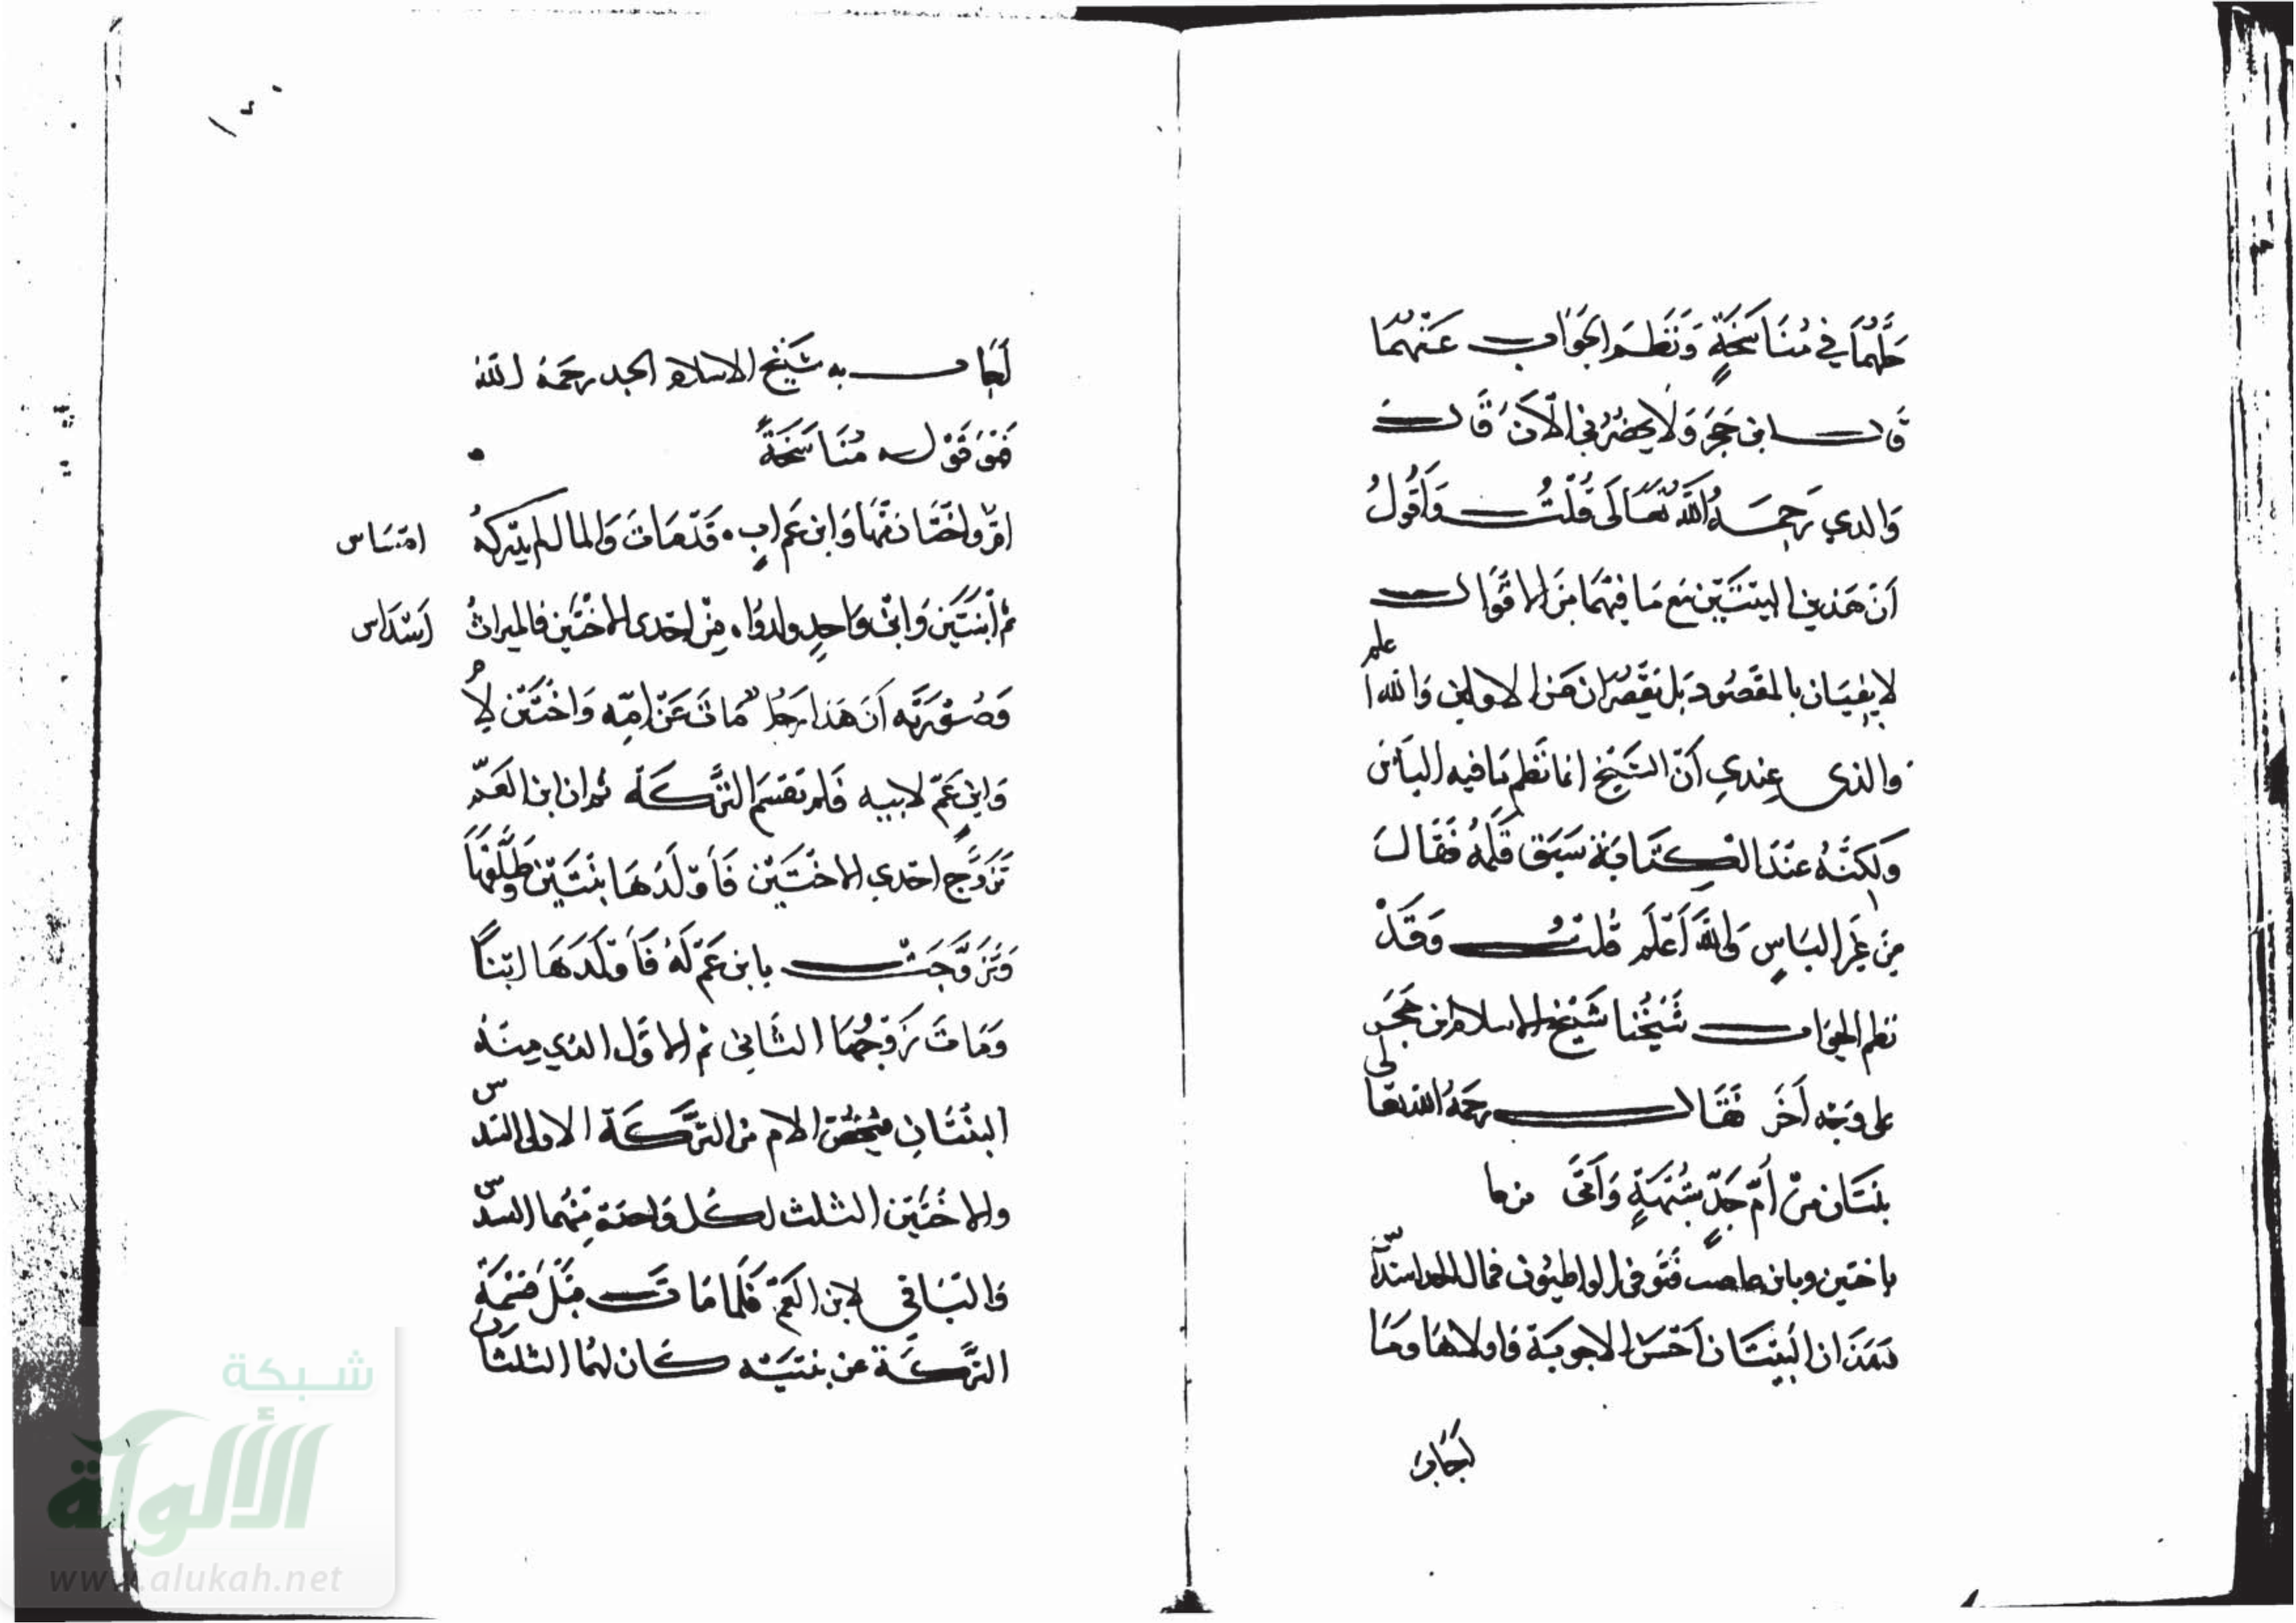 حَلَّهُمَا فِي مُنَاسَخَةٍ وَنَظَمَ الجَوَاب عَنْهُمَا
قال ابن حجر وَلَا يحضرني الآن قَال
وَالدي رَحِمَهُ اللَّه تعَالَى قُلْتُ وَأَقُولُ
أنّ هَذين البيتَيْن مَع مَا فيهمَا مِن الاقوَال
لا يفيَان بالمقصُود بَل يقصُرَان عن الاولين وَالله اعلم
والذى عِندي أنّ الشيخ انما نَظم مَا فيه البَأس
وَلكنَّهُ عنْدَ الكتَابَة سَبَق قَلَمُهُ فَقَالَ
مِن غير البَاسِ وَاللَّه أَعْلَم قُلتُ وَقَدْ
نظم الجَوَاب شَيخُنا شَيْخ الاسلام ابن حَجَر
على وَجْه آخَر فقَال رحمَهُ الله تعَالى
بنتَان مِنْ أُمّ جَدٍّ بشُبْهَةٍ وَأتَى من ما
باختين وبابن عاصب فتُوفى الواطئون فمال الجد اسدا
فهَذَان البَيْتَان أحْسَن الاجوبَة فاولاهَا ومَا
اجَاب
اجَاب به شَيْخ الاسلام الجد رحمَهُ الله
فهْوَ قَوْله مُنَاسَخَةً
امّ واخْتَان مَعْهَا وَابن عَم ابٍ قَدْ مَاتَ وَالمال لم يتركهُ امسَاس
ثم ابْنَتَيْن وَابْن وَاحِدٍ ولدوُا مِنْ احْدى الاخْتَيْن فالميراثُ أسْدَاس
وَصُوْرَته أنّ هَذا رَجُل مَاتَ عَنْ امِّه وَاخْتَيْن لأم
وَابن عَمّ لابيه فَلم تقسَم التَّركَة ثم ان ابن العَمّ
تَزَوَّج احْدى الاخْتَيْن فَأوْلَدَهَا بنْتَيْن وَطَلَّقهَا
وَتَزَوَّجَتْ بابن عَمّ لَهُ فَأَوْلَدَهَا ابْنًا
وَمَاتَ زَوْجُهَا الثَّانِى ثم الاوَّل الذي مِنْهُ
البنْتَانِ فيخصّ الام من التَّركَة الاولى السدس
والاخْتَيْن الثلث لكُل وَاحدَة مِنْهُما السدس
وَالبَاقى لابن العَمّ فَلَمّا مَاتَ قَبْل قسْمَة
التّركَة عن بنتيْه كَان لهُما الثلثَان
شبكة
الألوكة
www.alukah.net